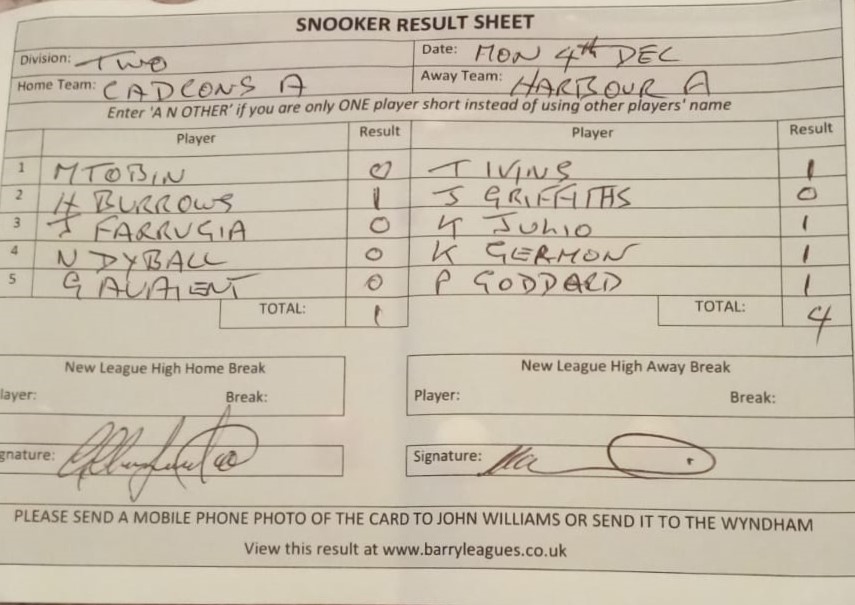 SNOOKER RESULT SHEET
Division: TWO Date: MON 4th DEC
Home Team: CADCONS A Away Team: HARBOUR A
Enter 'A N OTHER' if you are only ONE player short instead of using other players' name
Player Result Player Result
1 M TOBIN 0 T IVINS 1
2 H BURROWS 1 J GRIFFITHS 0
3 J FARRUGIA 0 K JULIO 1
4 N DYBALL 0 K GERMON 1
5 G 0 P GODDARD 1
TOTAL: 1 TOTAL: 4
New League High Home Break New League High Away Break
layer: Break: Player: Break:
gnature: Signature:
PLEASE SEND A MOBILE PHONE PHOTO OF THE CARD TO JOHN WILLIAMS OR SEND IT TO THE WYNDHAM
View this result at www.barryleagues.co.uk